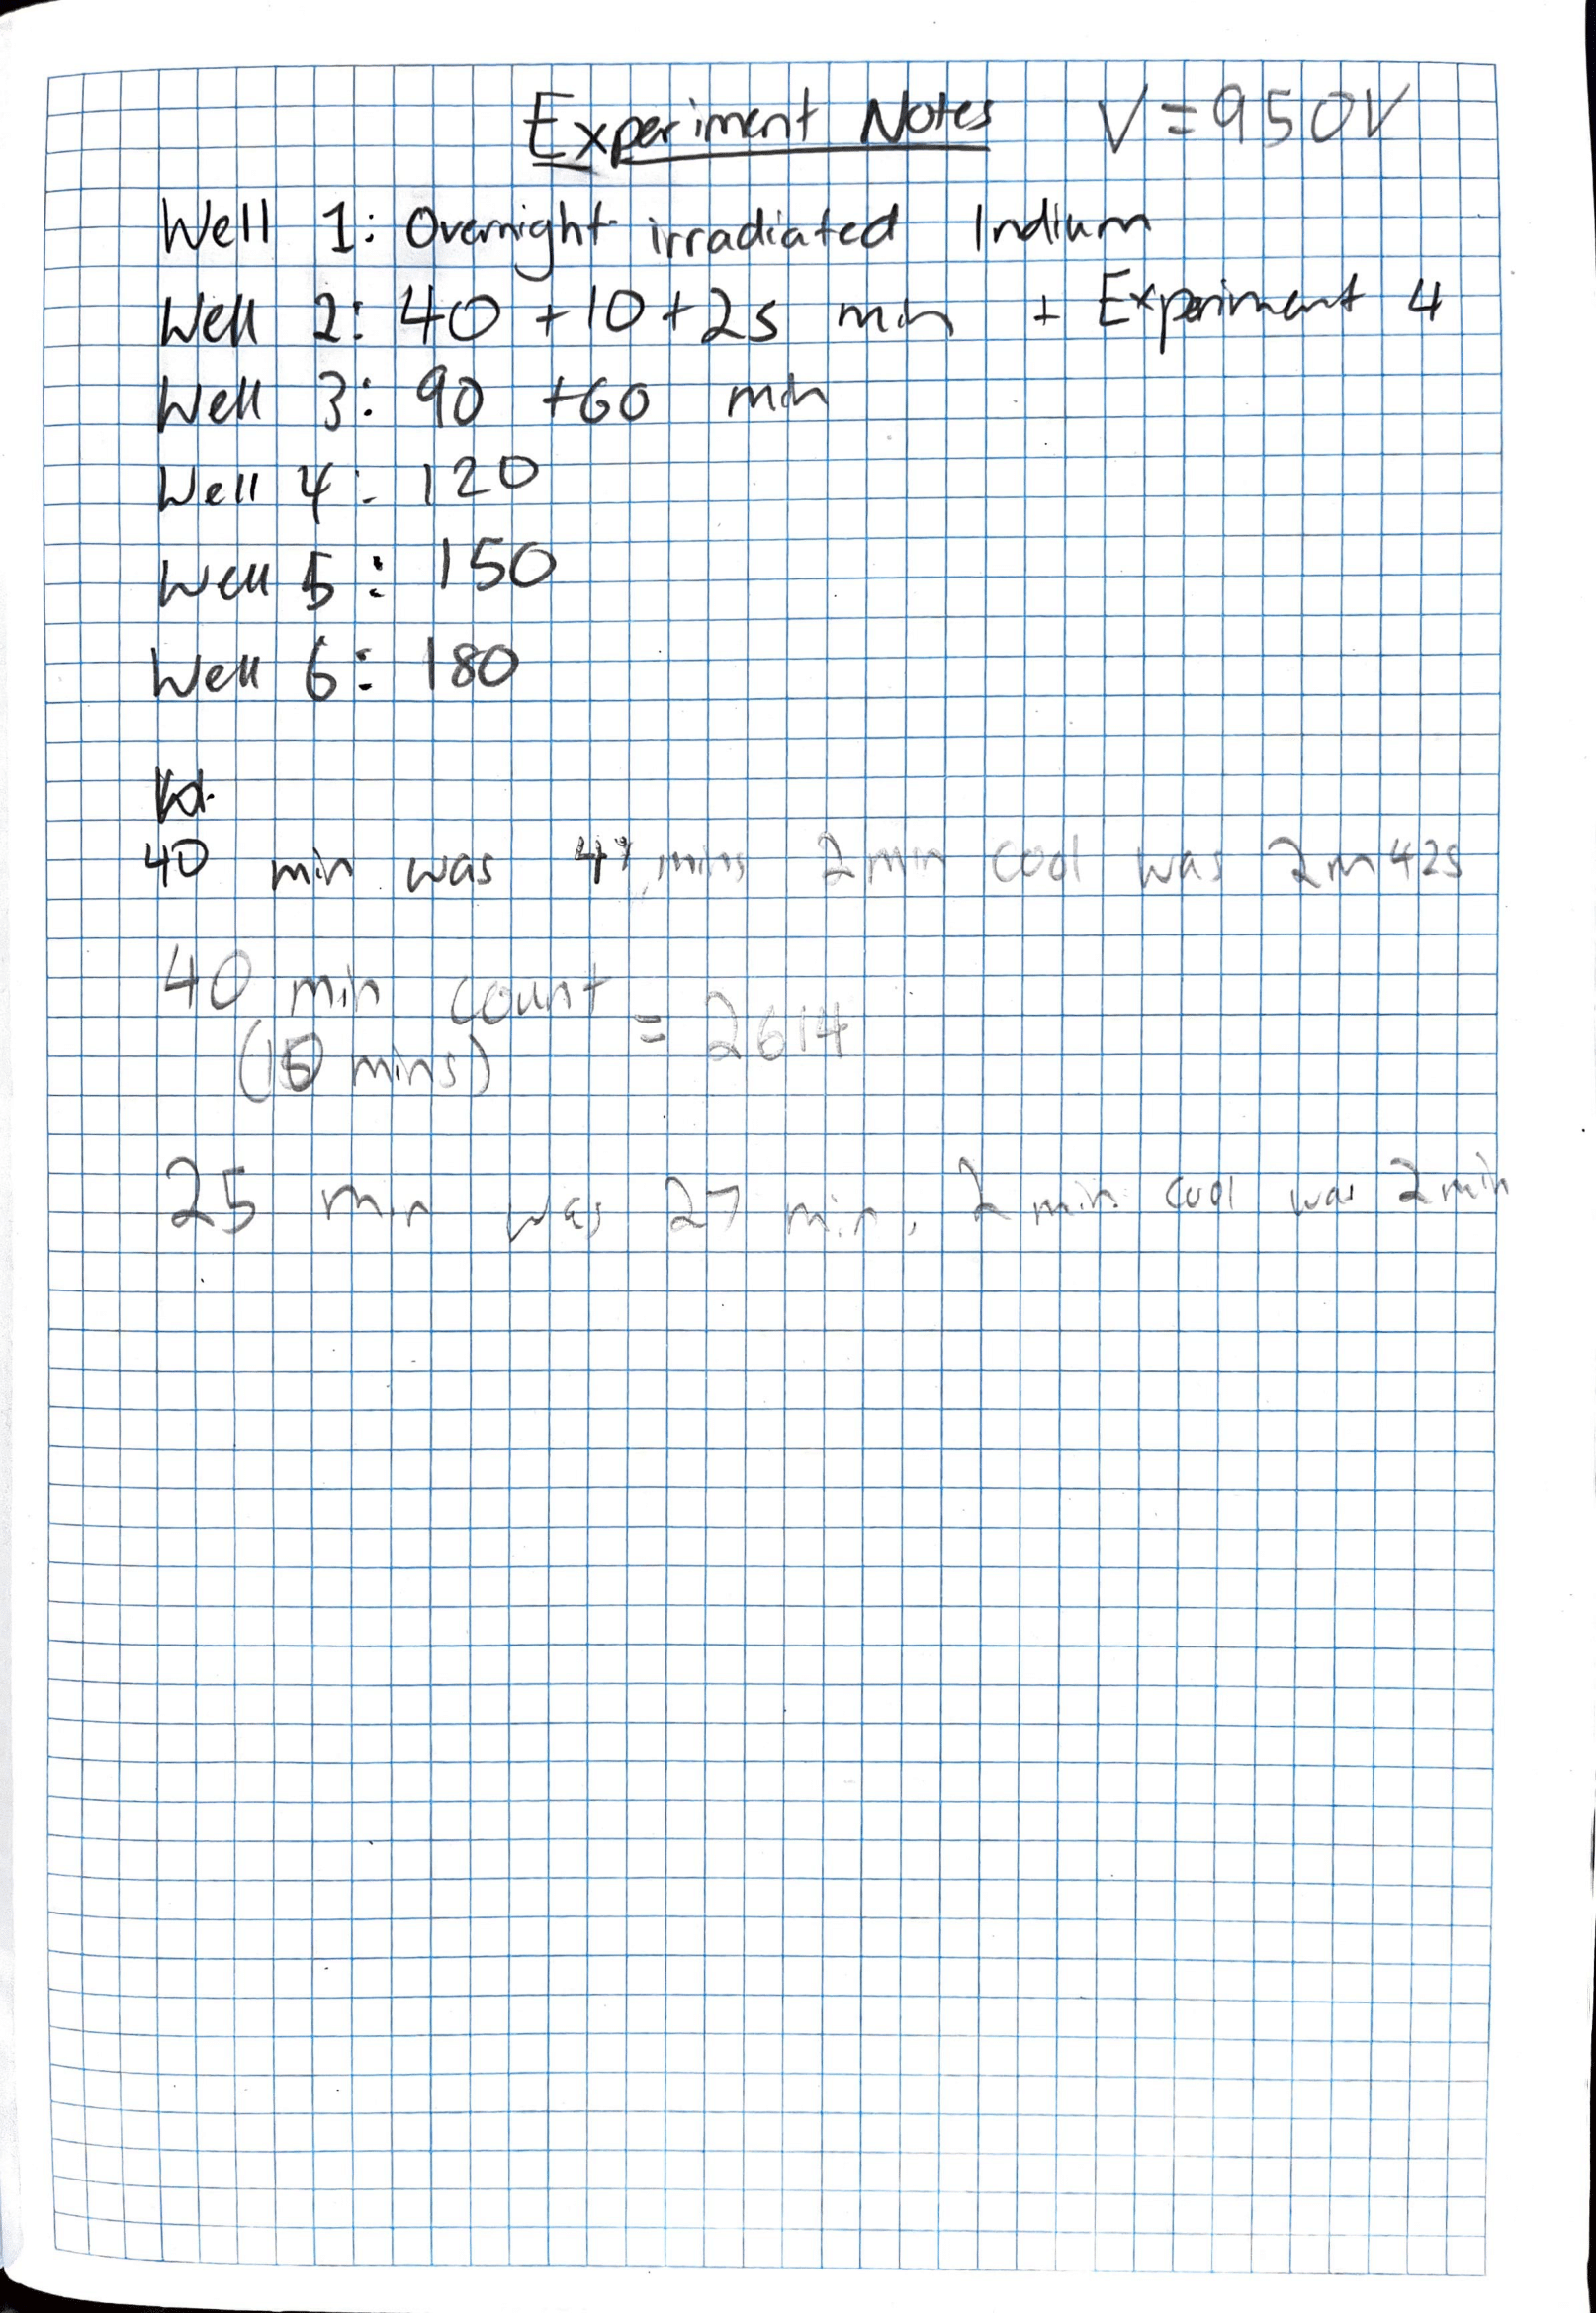 Experiment Notes V=950V
Well 1: Overnight irradiated Indium
Well 2: 40 +10+25 min + Experiment 4
Well 3: 90 +60 min
Well 4: 120
Well 5: 150
Well 6: 180
40 min was mins 2min cool was 2m42s
40 min count = 2614
(15 mins)
25 min was 27 min, 2 min cool was 2min